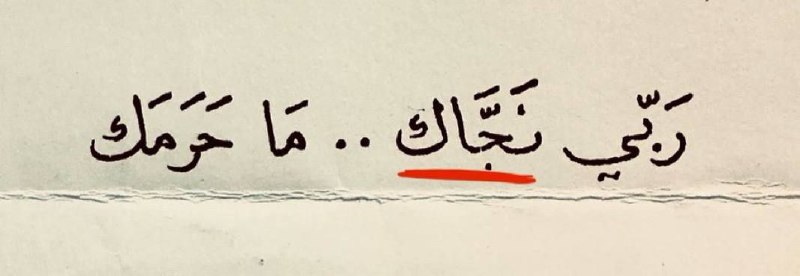 رَبّي نَجَّاك .. مَا حَرَمَك